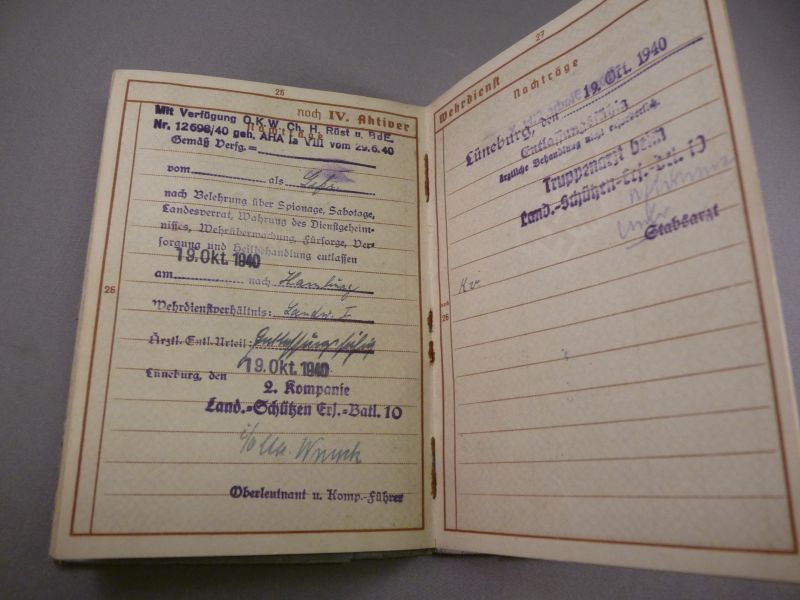 25
noch IV. Aktiver
Mit Verfügung O.K.W. Ch. H. Rüst u. BdE.
Nr. 12698/40 geh. AHA Ia VIII vom 29.6.40
Nachträge
Gemäß Verfg.=
vom als Gefr.
nach Belehrung über Spionage, Sabotage,
Landesverrat, Wahrung des Dienstgeheim-
nisses, Wehrüberwachung, Fürsorge, Ver
sorgung und Heilbehandlung entlassen
19. Okt. 1940
am nach Hamburg
26
Wehrdienstverhältnis: Landw. I
Ärztl. Entl. Urteil: Entlassungsfähig
19. Okt. 1940
Lüneburg, den
2. Kompanie
Land.-Schützen Ers.-Batl. 10
Oberleutnant u. Komp.-Führer
27
Wehrdienst
Nachträge
Lüneburg, den 19. Okt. 1940
Entlassungsfähig
Ärztliche Behandlung nicht erforderlich.
Truppenarzt beim
Land.-Schützen-Ers.-Batl. 10
Stabsarzt
Kv.
26